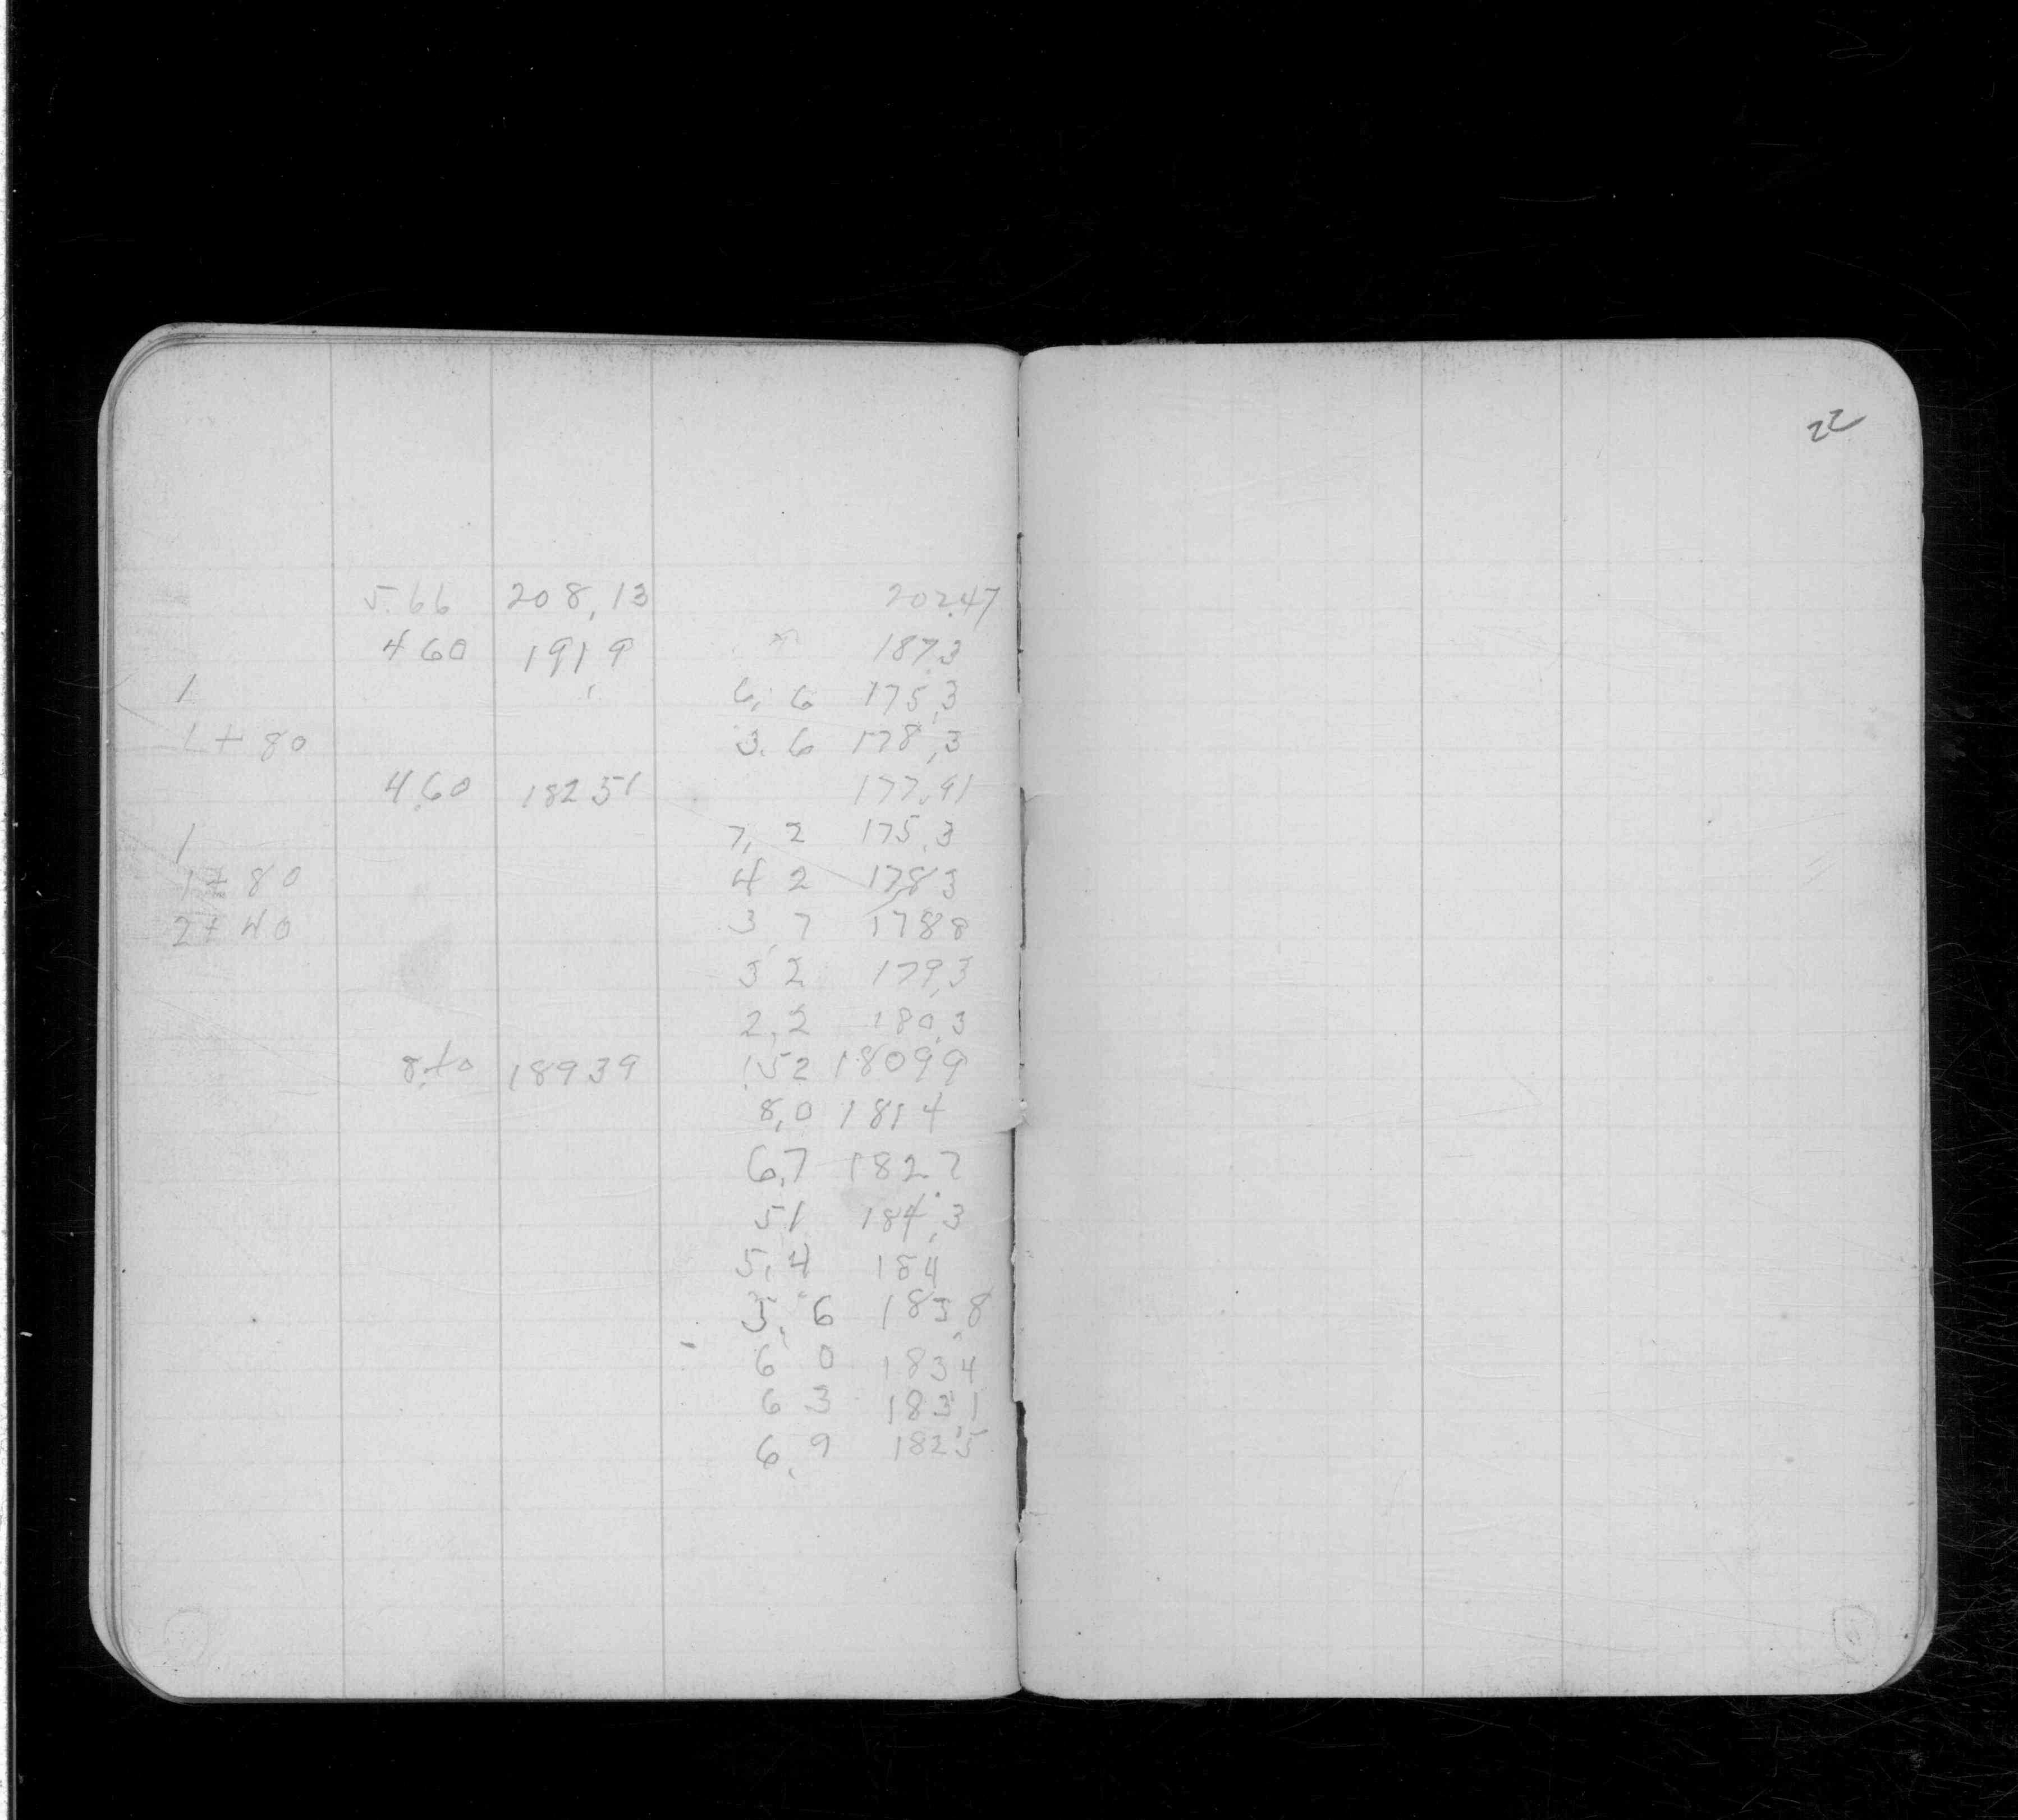 22
5.66 208,13 202.47
460 191 9 187,3
1 6, 6 175,3
1 + 80 3. 6 178,3
4.60 182 51 177.91
1 7, 2 175,3
1 + 80 4 2 178 3
2 + 40 3, 7 178 8
3 2 179,3
2,2 180,3
8.40 189 39 1.52 180 99
8,0 181 4
6,7 182 7
5 1 184,3
5, 4 184
5, 6 183,8
6 0 183 4
6 3 183,1
6, 9 182 5